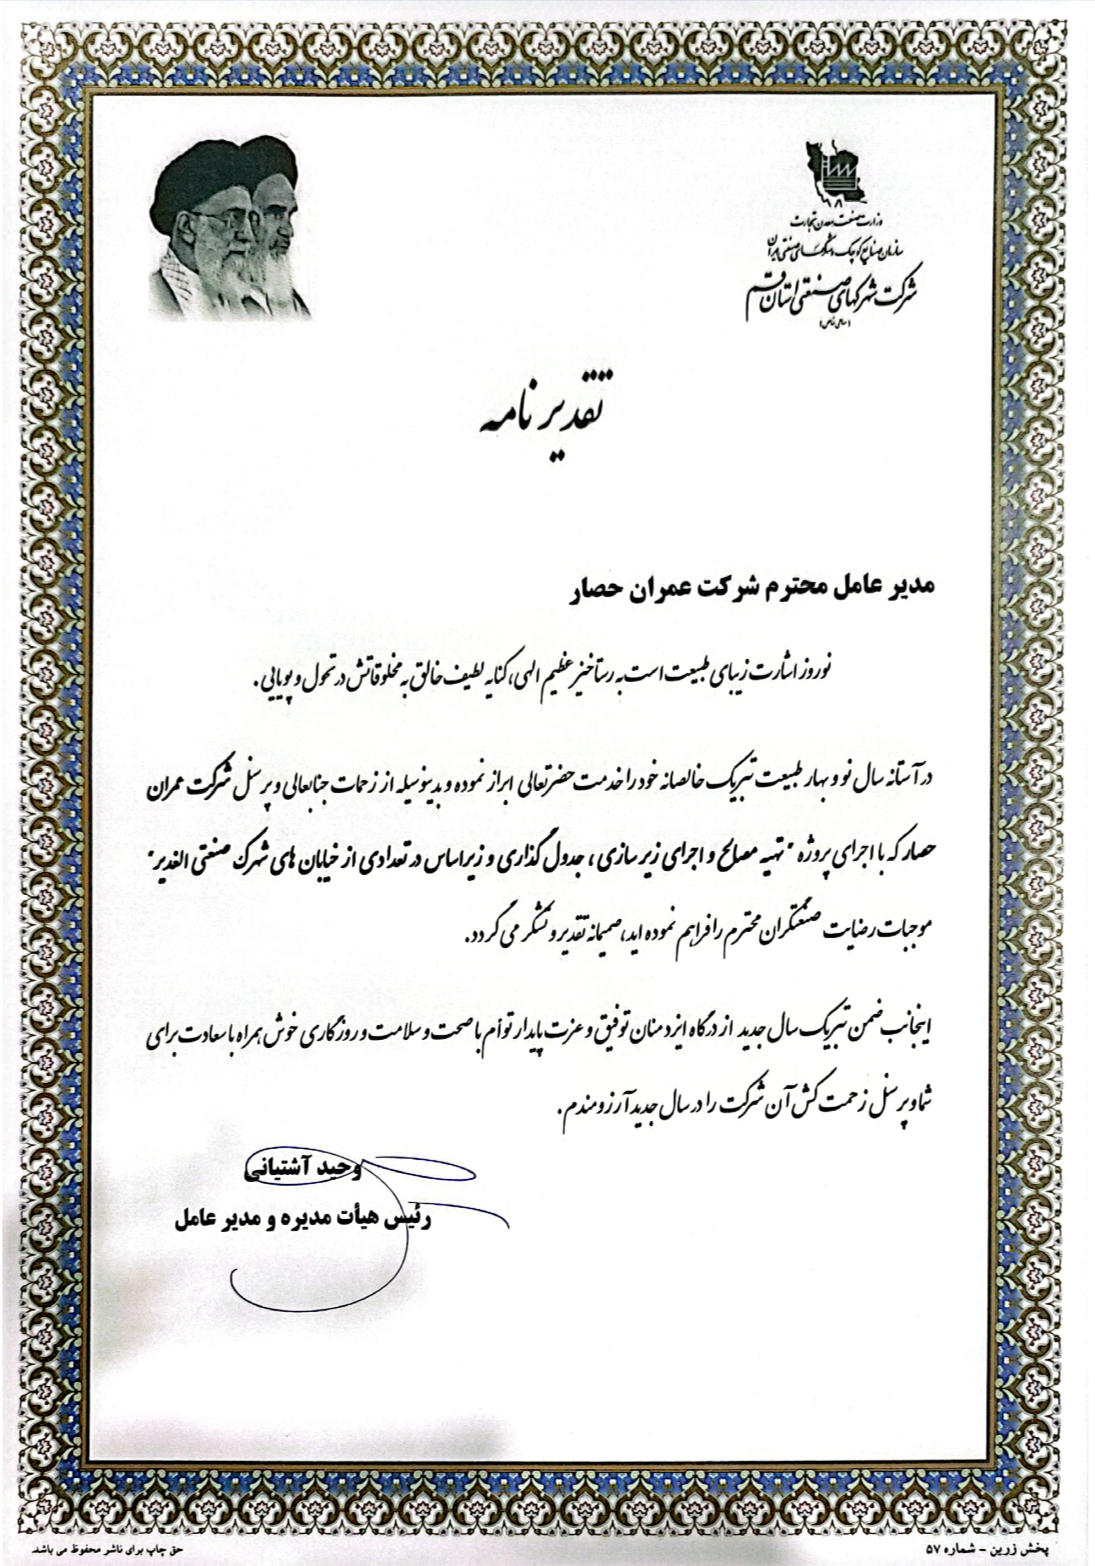 وزارت صنعت، معدن و تجارت
سازمان صنایع کوچک و شهرکهای صنعتی ایران
شرکت شهرکهای صنعتی استان قم
(سهامی خاص)
تقدیر نامه
مدیر عامل محترم شرکت عمران حصار
نوروز اشارت زیبای طبیعت است به رستاخیز عظیم الهی، کنایه لطیف خالق به مخلوقاتش در تحول و پویایی.
در آستانه سال نو و بهار طبیعت تبریک خالصانه خود را خدمت حضرتعالی ابراز نموده و بدینوسیله از زحمات جنابعالی و پرسنل شرکت عمران
حصار که با اجرای پروژه "تهیه مصالح و اجرای زیر سازی ، جدول گذاری و زیراساس در تعدادی از خیابان های شهرک صنعتی الغدیر"
موجبات رضایت صنعتگران محترم را فراهم نموده اید، صمیمانه تقدیر و تشکر می گردد.
اینجانب ضمن تبریک سال جدید از درگاه ایزد منان توفیق و عزت پایدار توأم با صحت و سلامت و روزگاری خوش همراه با سعادت برای
شما و پرسنل زحمت کش آن شرکت را در سال جدید آرزومندم.
وحید آشتیانی
رئیس هیأت مدیره و مدیر عامل
پخش زرین - شماره ۵۷
حق چاپ برای ناشر محفوظ می باشد.